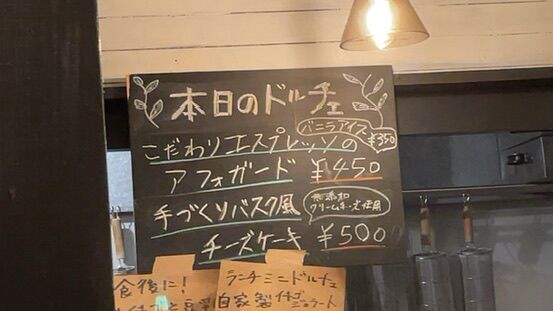 本日のドルチェ
バニラアイス
¥350
こだわりエスプレッソの
アフォガード ¥450
手づくりバスク風
無添加
クリームチーズ使用
チーズケーキ ¥500
食後に!
ランチミニドルチェ
自家製イチゴ
ジェラート